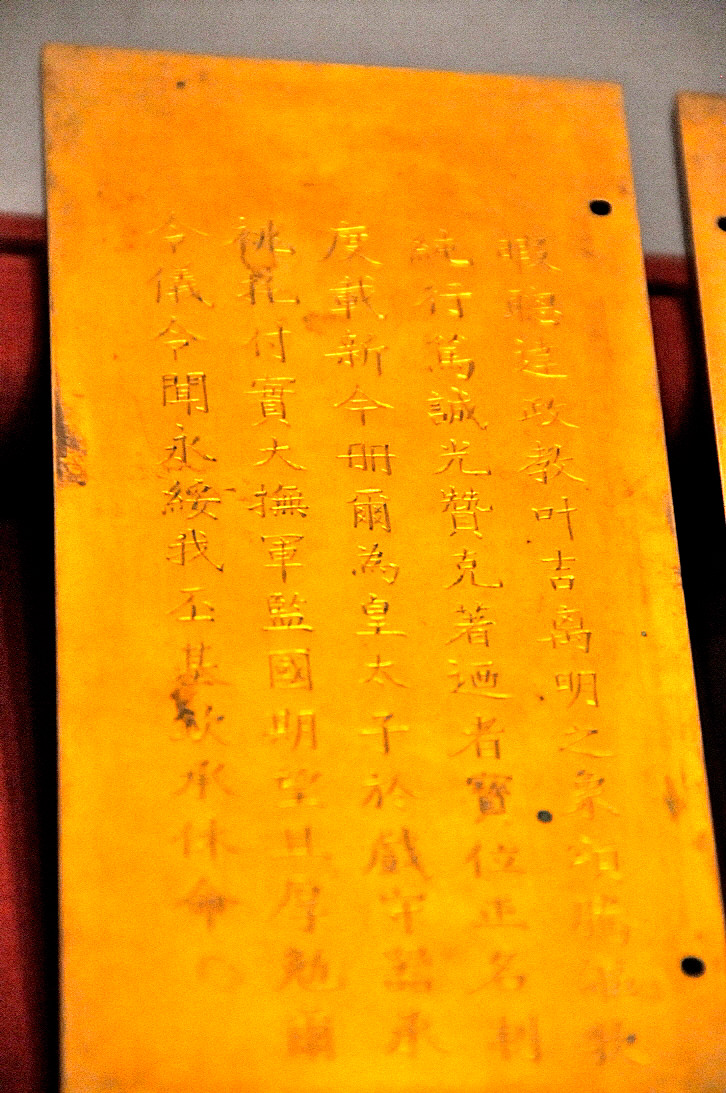 暇聰達政教叶吉离明之象
純行篤誠光贊克著迺者寶位正名制
度載新今冊爾為皇太子於戲守器承
祧托付實大撫軍監國期望且厚勉爾
令儀令聞永綏我丕基欽承休命